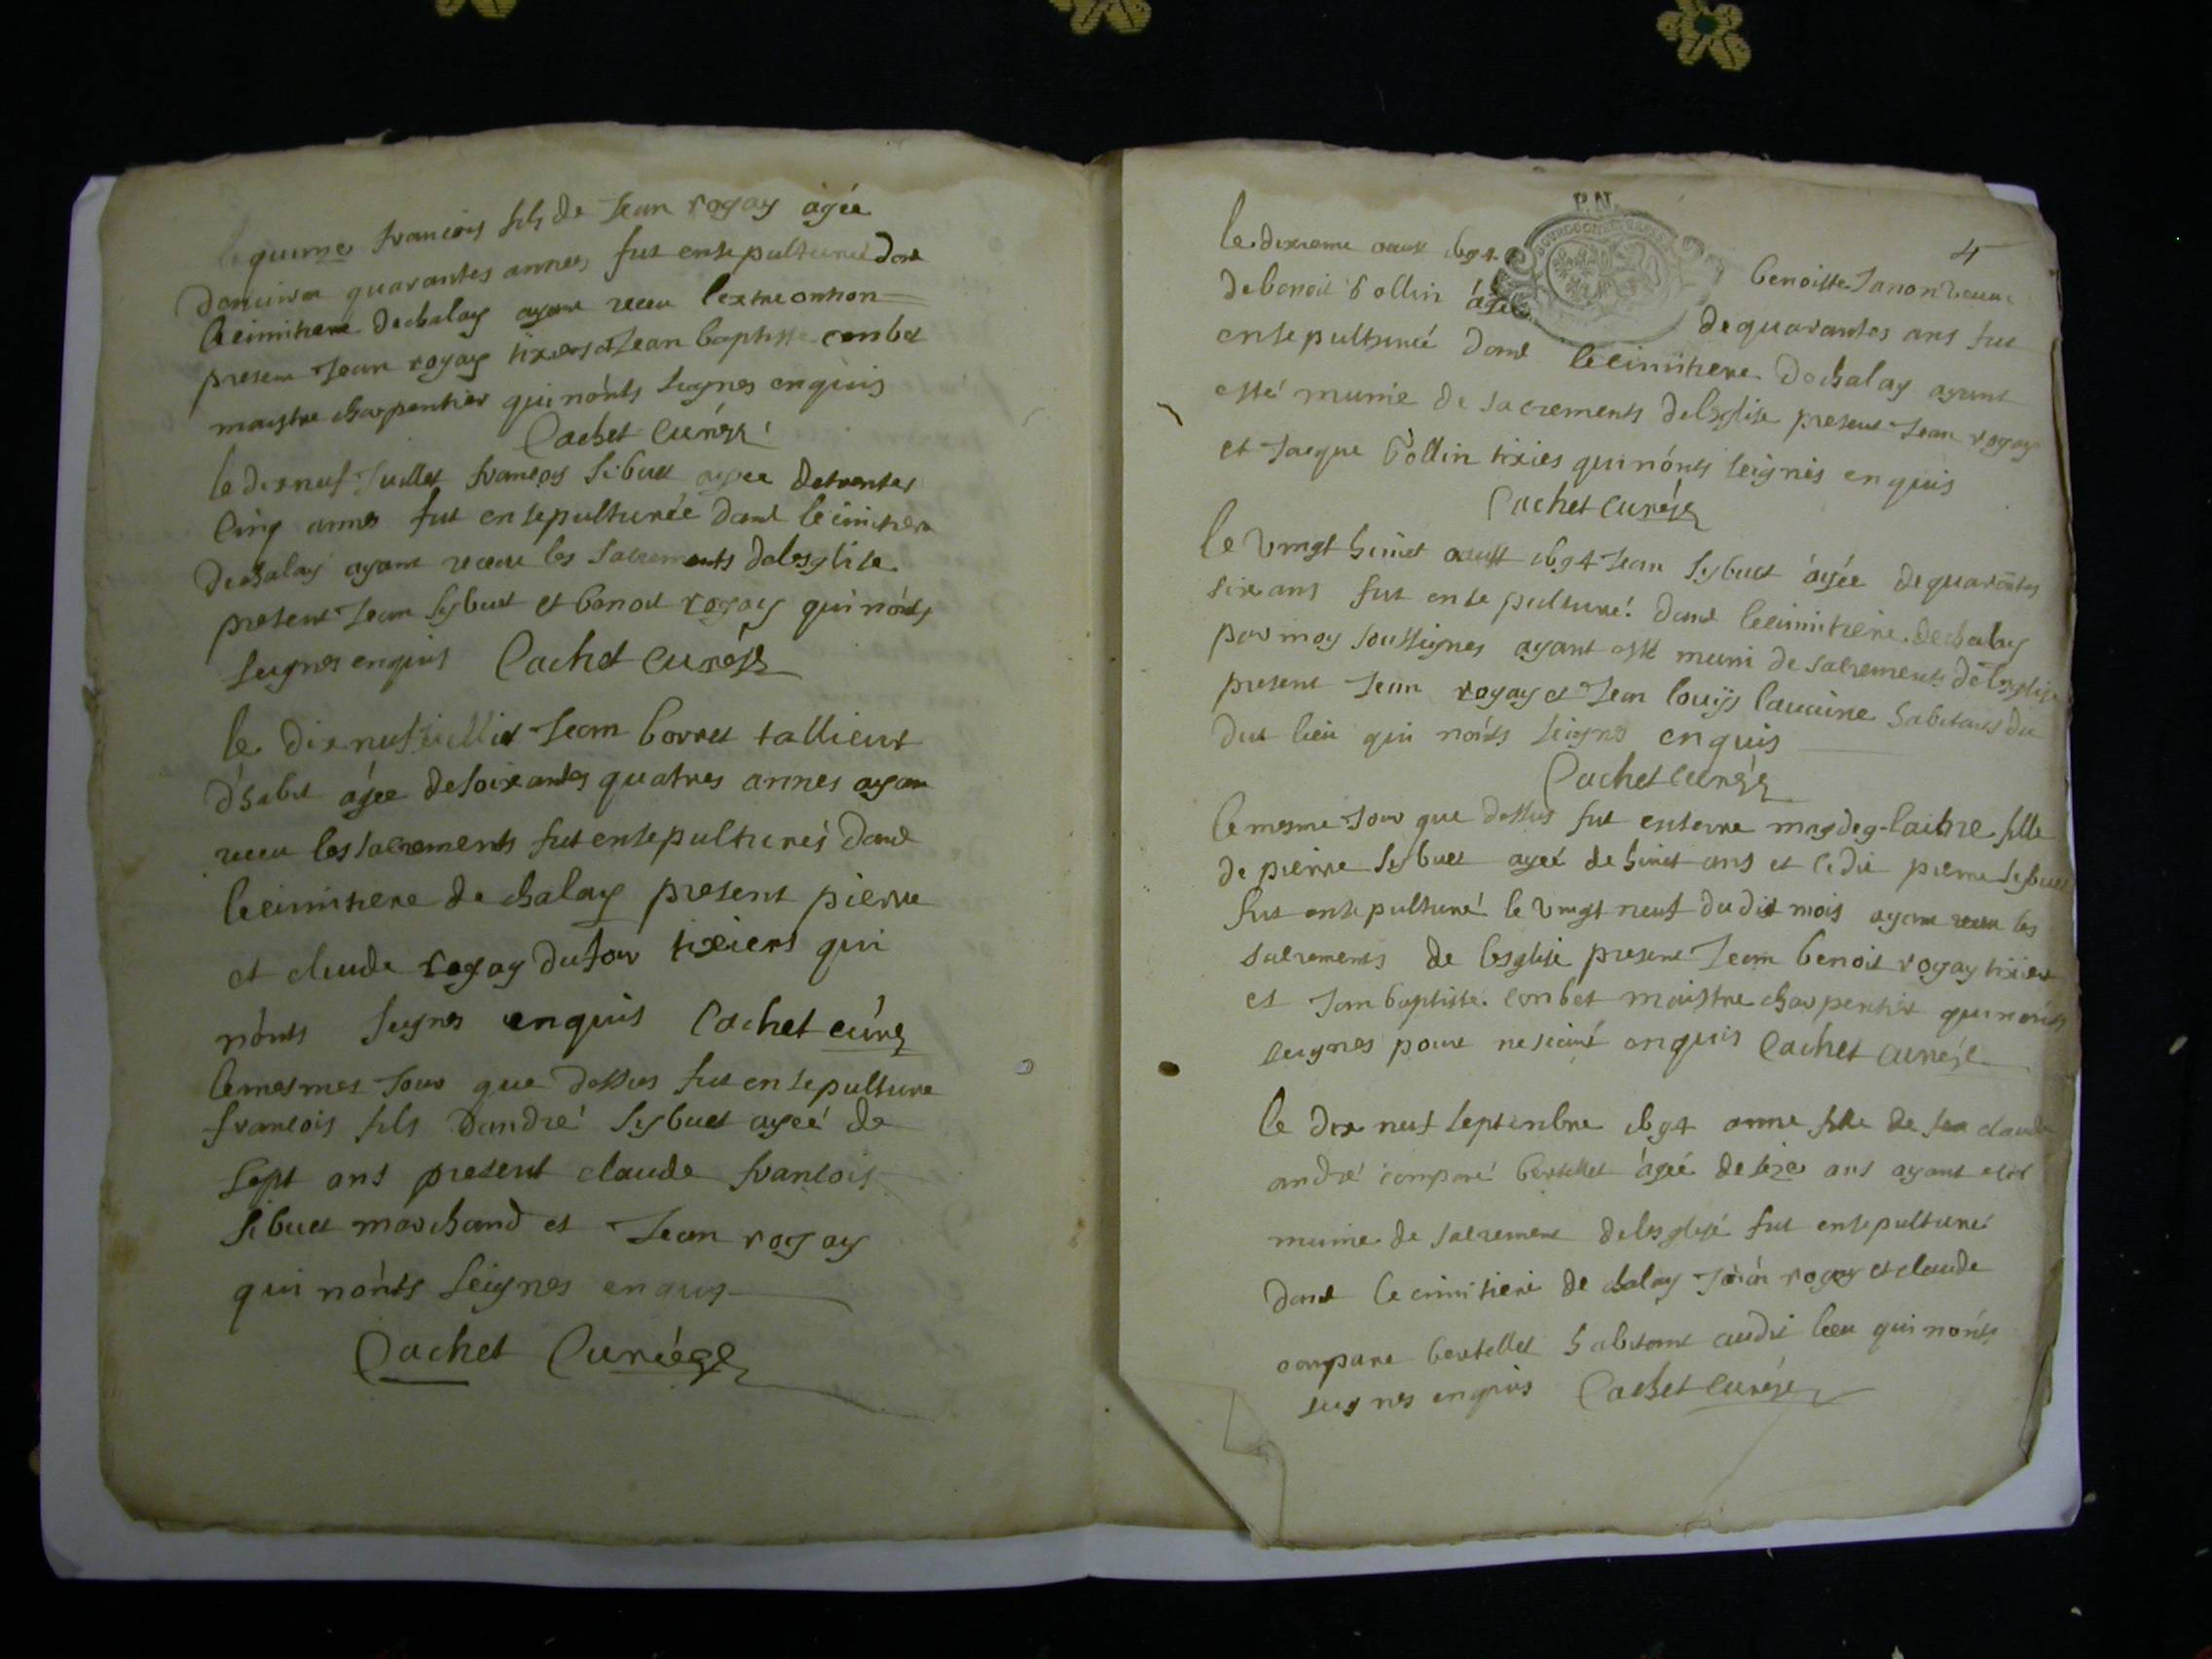 le quinse francois fils de Jean rogay agée
denuiron quarantes annees fut ensepulturée dans
le cimitiere de chalay ayant receu lextreontion
present Jean rogay tixiers et Jean baptiste conbet
maystre charpentier qui nónts signes enquis
Cachet Curé
le dix neuf Juillet françois Sibuet agee de trentes
Cinq annes fut ensepulturée dans le cimitiere
de chalay ayant receu les Sacrements de lesglise
present Jean Sybuet et benoit rogay qui nónts
signes enquis Cachet Curé
le dix neuf juillet Jean borret tallieur
d'habit ágée de soixantes quatres annes ayan
receu les sacrements fut ensepulturés dans
le cimitiere de chalay present pierre
et claude rogay dufour tixiers qui
nónts signes enquis Cachet cúré
le mesmes Jour que dessus fut ensepulture
francois fils dandré Sybuet ageé de
sept ans present claude francois
Sibuet marchand et Jean rogay
qui nónts seignes enquis
Cachet Curé
P.N.
4
le dixieme aoust 1694 benoiste
de benoit Collin ágée de quarantes ans fut
ensepulturée dans le cimitiere de chalay ayant
esté munie de sacrements de lesglise present Jean rogay
et Jacque Collin tixies qui nónts seignés enquis
Cachet Curé
le vingt huict aoust 1694 Jean Sybuet ágée de quarantes
six ans fut ensepulturé dans le cimitiere de chalay
par moy soussignes ayant esté muni de sacrements de lesglise
present Jean rogay et Jean louys habitants du
dit lieu qui nónts signes enquis
Cachet Curé
le mesme Jour que dessus fut enterre fille
de pierre Sybuet ageé de huict ans et ledit pierre Sybuet
fut ensepulturé le vingt neuf dudit mois ayant receu les
sacrements de lesglise present Jean benoit rogay tixier
et Jan baptiste conbet maistre charpentier qui nónts
seignes pour ne enquis Cachet Curé
le dix neuf septenbre 1694 anne fille de feu claude
andré conpare bertellet ágée de seze ans ayant esté
munie de sacrement de lesglise fut ensepulturé
dans le cimitiere de chalay rogay et claude
conpare bertellet habitant audit lieu qui nónts
signes enquis Cachet Curé